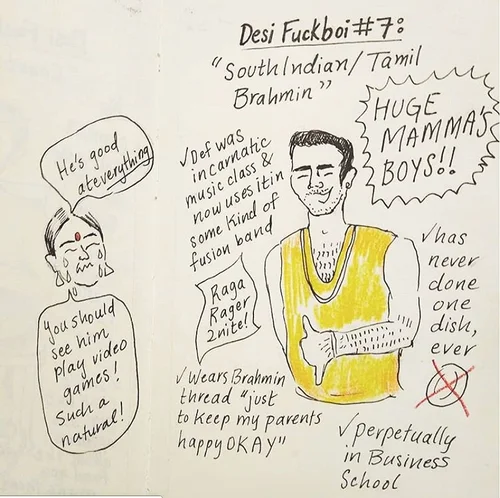 Desi Fuckboi #7:
"South Indian/Tamil
Brahmin"
HUGE
MAMMA'S
BOYS!!
He's good
at everything
you should
see him
play video
games!
Such a
natural!
✓Def was
in carnatic
music class &
now uses it in
some kind of
fusion band
Raga
Rager
2nite!
✓Wears Brahmin
thread "just
to keep my parents
happy OKAY"
✓has
never
done
one
dish,
ever
✓perpetually
in Business
School